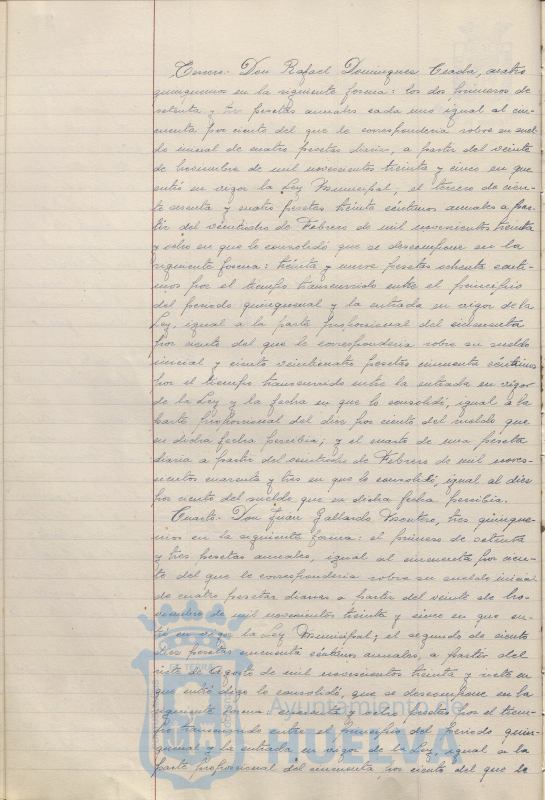 Tercero. Don Rafael Dominguez Ceada, cuatro
quinquenios en la siguiente forma: los dos primeros de
setenta y tres pesetas anuales cada uno igual al cin-
cuenta por ciento del que le correspondería sobre su suel-
do inicial de cuatro pesetas diarias, a partir del veinte
de Noviembre de mil novecientos treinta y cinco en que
entró en vigor la Ley Municipal, el tercero de cien-
to sesenta y cuatro pesetas treinta céntimos anuales a par-
tir del veintiocho de Febrero de mil novecientos treinta
y ocho en que lo consolidó que se descompone en la
siguiente forma: treinta y nueve pesetas ochenta cénti-
mos por el tiempo transcurrido entre el principio
del periodo quinquenal y la entrada en vigor de la
Ley, igual a la parte proporcional del cincuenta
por ciento del que le correspondería sobre su sueldo
inicial y ciento veinticuatro pesetas cincuenta céntimos
por el tiempo transcurrido entre la entrada en vigor
de la Ley y la fecha en que lo consolidó, igual a la
parte proporcional del diez por ciento del sueldo que
en dicha fecha percibía; y el cuarto de una peseta
diaria a partir del veintiocho de Febrero de mil noves-
cientos cuarenta y tres en que lo consolidó, igual al diez
por ciento del sueldo que en dicha fecha percibía.
Cuarto. Don Juan Gallardo Montero, tres quinque-
nios en la siguiente forma: el primero de setenta
y tres pesetas anuales, igual al cincuenta por cien-
to del que le correspondería sobre su sueldo inicial
de cuatro pesetas diarias a partir del veinte de No-
viembre de mil novecientos treinta y cinco en que en-
tró en vigor la Ley Municipal; el segundo de ciento
diez pesetas cincuenta céntimos anuales, a partir del
siete de Agosto de mil novecientos treinta y siete en
que entró digo lo consolidó, que se descompone en la
siguiente forma: y ocho pesetas por el tiem-
po transcurrido entre el principio del periodo quin-
quenal y la entrada en vigor de la Ley, igual a la
parte proporcional del cincuenta por ciento del que le
TERRAE
Ayuntamiento de
HUELVA